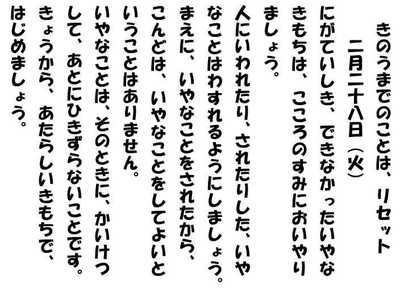 きのうまでのことは、リセット
二月二十八日（火）
にがていしき、できなかったいやな
きもちは、こころのすみにおいやり
ましょう。
人にいわれたり、されたりした、いや
なことはわすれるようにしましょう。
まえに、いやなことをされたから、
こんどは、いやなことをしてよいと
いうことはありません。
いやなことは、そのときに、かいけつ
して、あとにひきずらないことです。
きょうから、あたらしいきもちで、
はじめましょう。